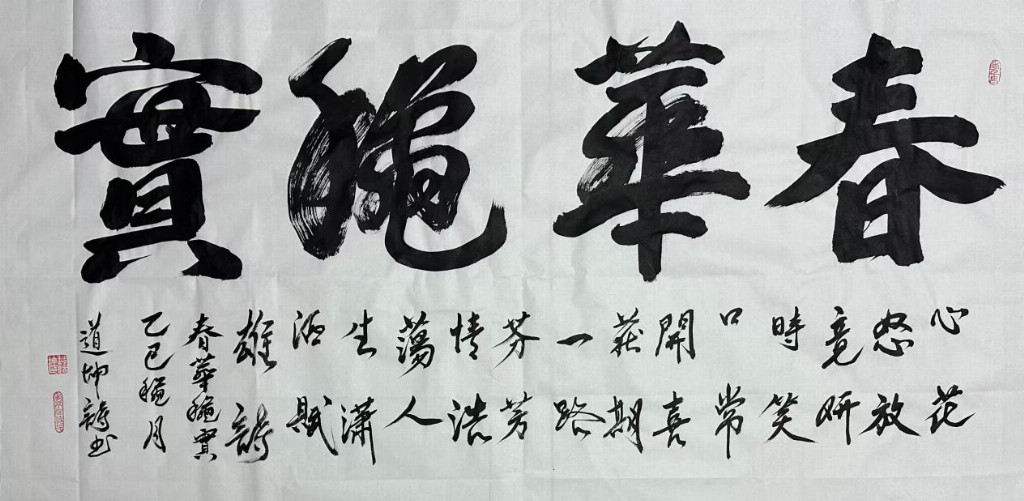 春華穐實
心花
怒放
竟妍
時笑
口常
開喜
获期
一路
芬芳
情浩
蕩人
生瀟
洒賦
雄詩
春華穐實
乙巳穐月
道坤詩书